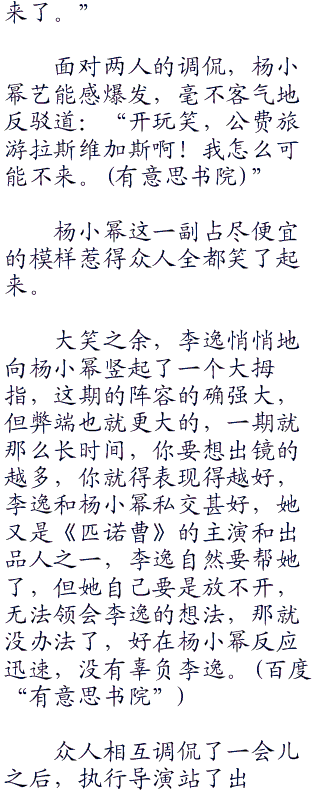 来了。”
面对两人的调侃，杨小
幂艺能感爆发，毫不客气地
反驳道：“开玩笑，公费旅
游拉斯维加斯啊！我怎么可
能不来。(有意思书院)”
杨小幂这一副占尽便宜
的模样惹得众人全都笑了起
来。
大笑之余，李逸悄悄地
向杨小幂竖起了一个大拇
指，这期的阵容的确强大，
但弊端也就更大的，一期就
那么长时间，你要想出镜的
越多，你就得表现得越好，
李逸和杨小幂私交甚好，她
又是《匹诺曹》的主演和出
品人之一，李逸自然要帮她
了，但她自己要是放不开，
无法领会李逸的想法，那就
没办法了，好在杨小幂反应
迅速，没有辜负李逸。(百度
“有意思书院”)
众人相互调侃了一会儿
之后，执行导演站了出